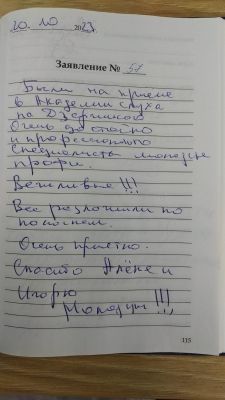 20.10 2023
Заявление № 57
Были на приеме
в Академии слуха
на Дзержинского
Очень
и профессионально
специалисты молодцы
профи.
Вежливые!!!
Все разложили по
полочкам.
Очень приятно.
Спасибо Алёне и
Игорю
Молодцы!!!
115